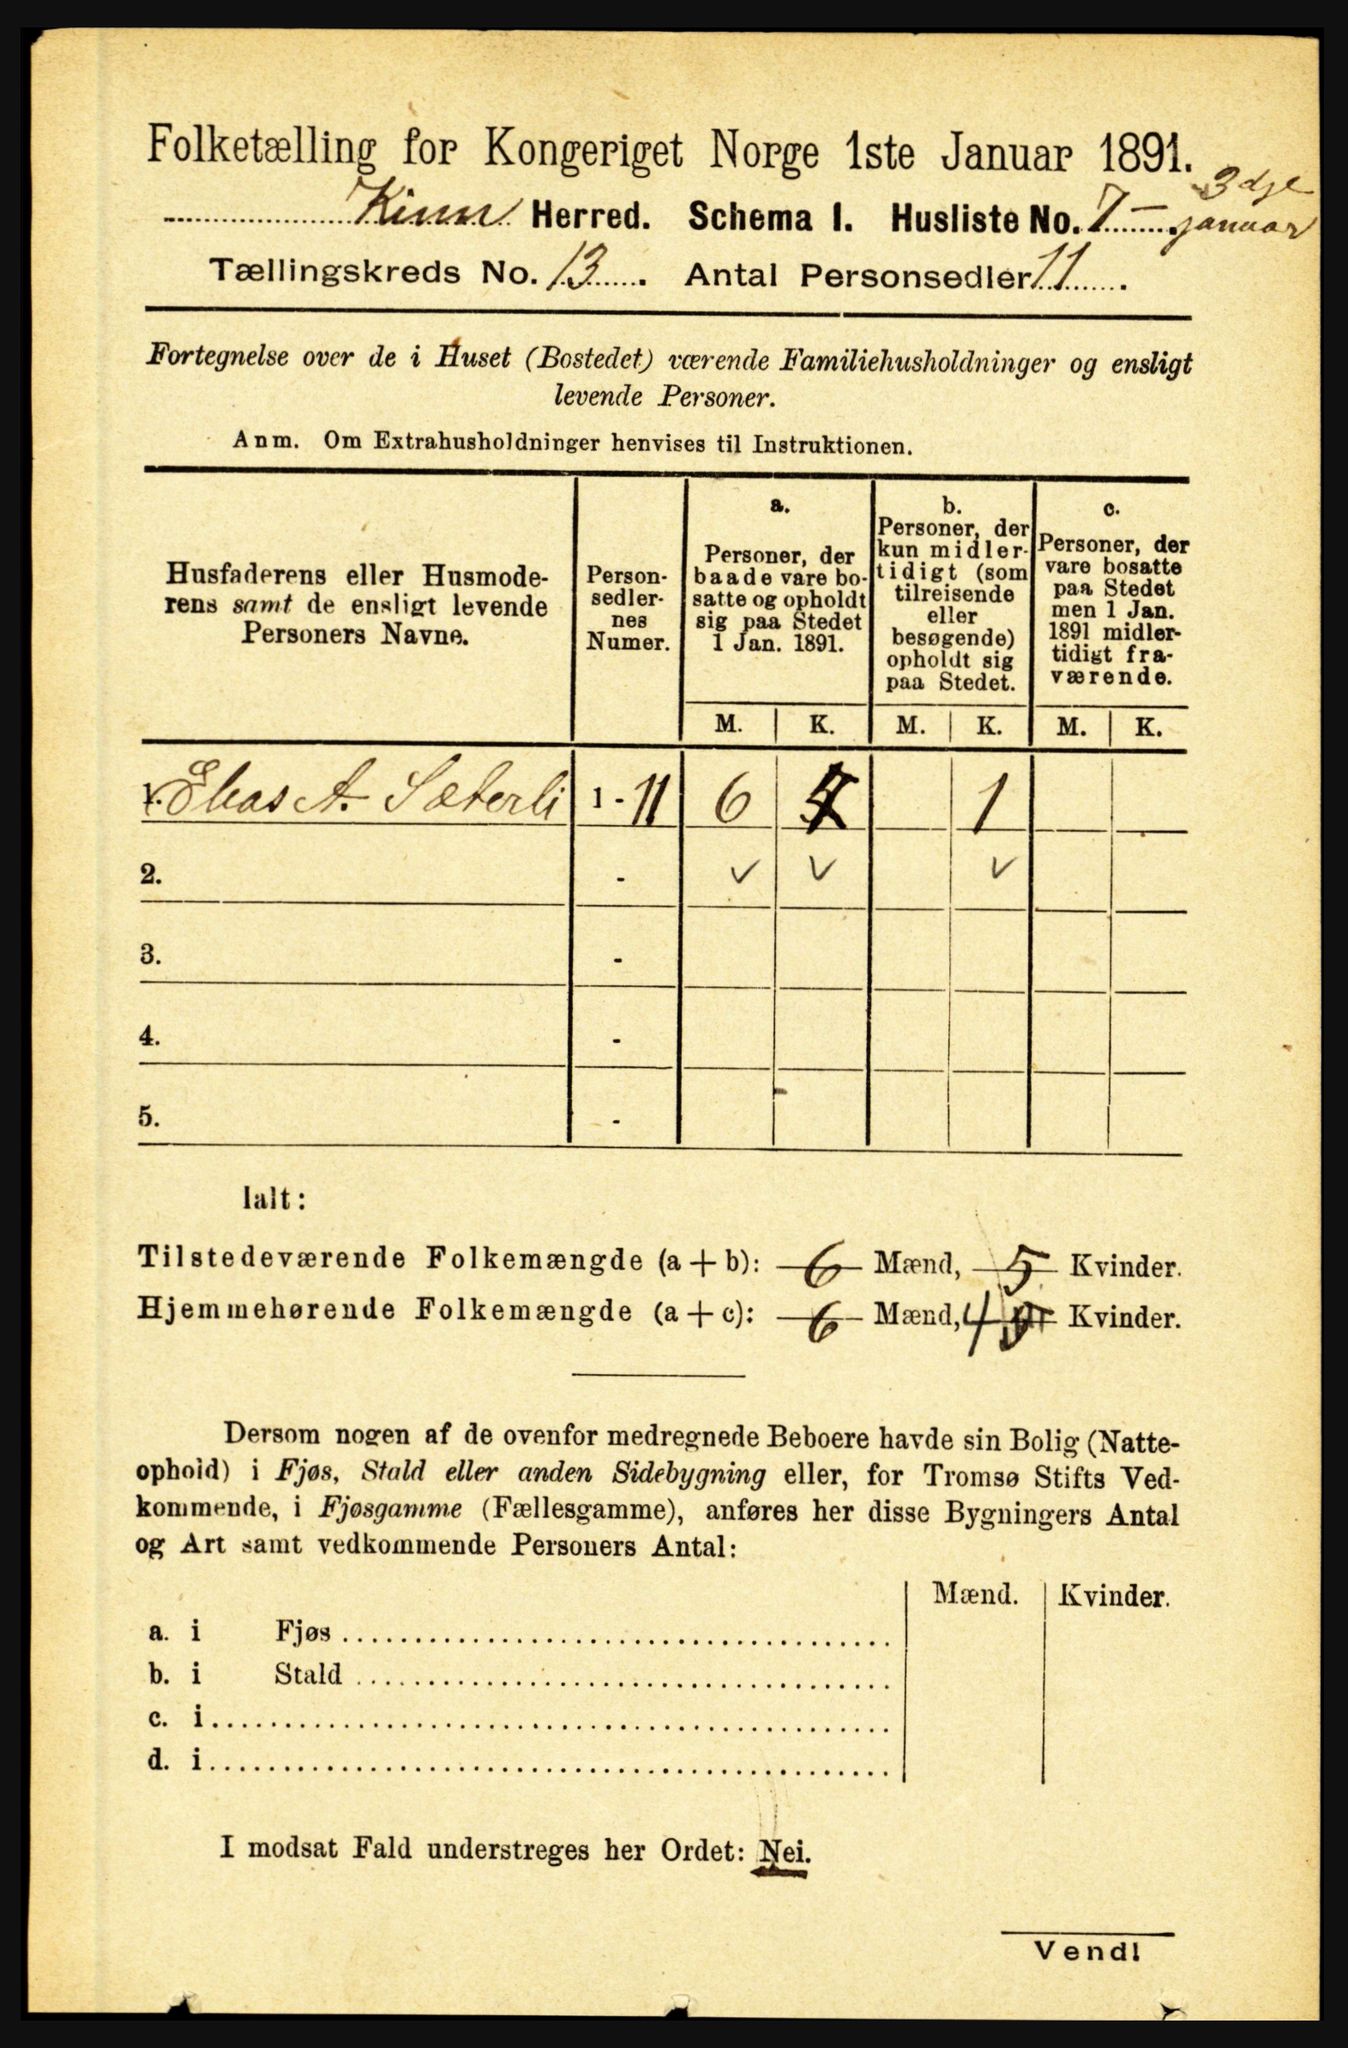 Folketælling for Kongeriget Norge 1ste Januar 1891.
Kinn Herred. Schema I. Husliste No. 7 - 3dje januar
Tællingskreds No. 13. Antal Personsedler 11.
Fortegnelse over de i Huset (Bostedet) værende Familiehusholdninger og ensligt
levende Personer.
Anm. Om Extrahusholdninger henvises til Instruktionen.
Husfaderens eller Husmode-
rens samt de ensligt levende
Personers Navne.
Person-
sedler-
nes
Numer.
a.
Personer, der
baade vare bo-
satte og opholdt
sig paa Stedet
1 Jan. 1891.
b.
Personer, der
kun midler-
tidigt (som
tilreisende
eller
besøgende)
opholdt sig
paa Stedet.
c.
Personer, der
vare bosatte
paa Stedet
men 1 Jan.
1891 midler-
tidigt fra-
værende.
M. K. M. K. M. K.
1. Elias A. Sæterli 1 - 11 6 4 1
2. -
3. -
4. -
5. -
Ialt:
Tilstedeværende Folkemængde (a + b): 6 Mænd, 5 Kvinder.
Hjemmehørende Folkemængde (a + c): 6 Mænd, 4 5 Kvinder.
Dersom nogen af de ovenfor medregnede Beboere havde sin Bolig (Natte-
ophold) i Fjøs, Stald eller anden Sidebygning eller, for Tromsø Stifts Ved-
kommende, i Fjøsgamme (Fællesgamme), anføres her disse Bygningers Antal
og Art samt vedkommende Personers Antal:
Mænd. Kvinder.
a. i Fjøs
b. i Stald
c. i
d. i
I modsat Fald understreges her Ordet: Nei.
Vend!